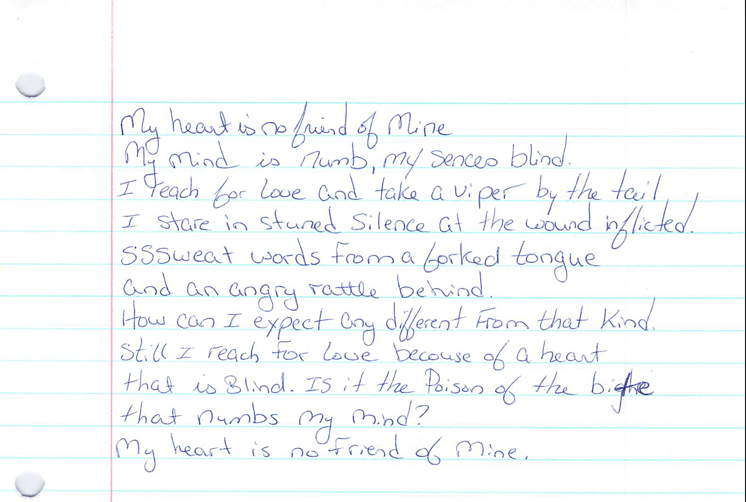 My heart is no friend of Mine
My mind is numb, my sences blind.
I reach for love and take a viper by the tail
I stare in stuned silence at the wound inflicted.
SSSweat words from a forked tongue
and an angry rattle behind.
How can I expect any different From that Kind.
Still I reach for love becouse of a heart
that is Blind. Is it the Poison of the bite
that numbs my mind?
My heart is no Friend of Mine.